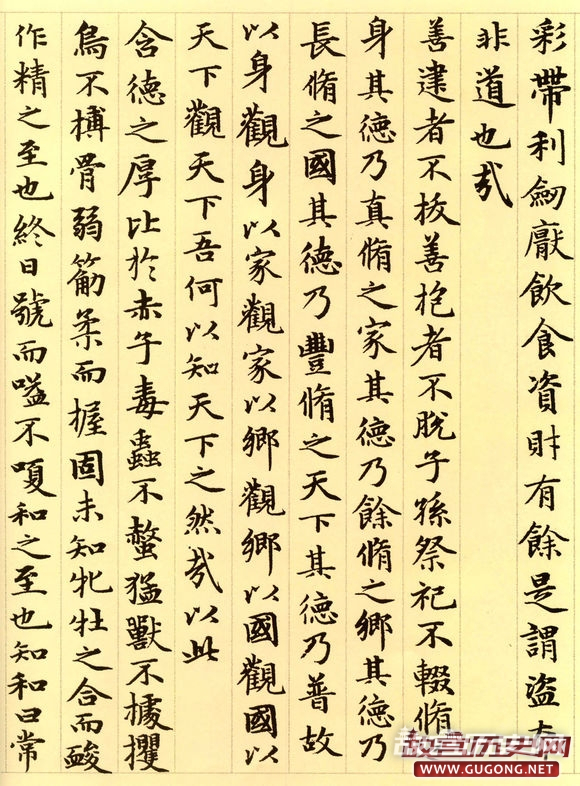 彩帶利劒厭飲食資財有餘是謂盜夸
非道也哉
善建者不拔善抱者不脫子孫祭祀不輟脩
身其德乃真脩之家其德乃餘脩之鄉其德乃
長脩之國其德乃豐脩之天下其德乃普故
以身觀身以家觀家以鄉觀鄉以國觀國以
天下觀天下吾何以知天下之然哉以此
含德之厚比於赤子毒蟲不螫猛獸不據攫
鳥不搏骨弱筋柔而握固未知牝牡之合而酸
作精之至也終日號而嗌不嗄和之至也知和曰常
故宫历史网
WWW.GUGONG.NET